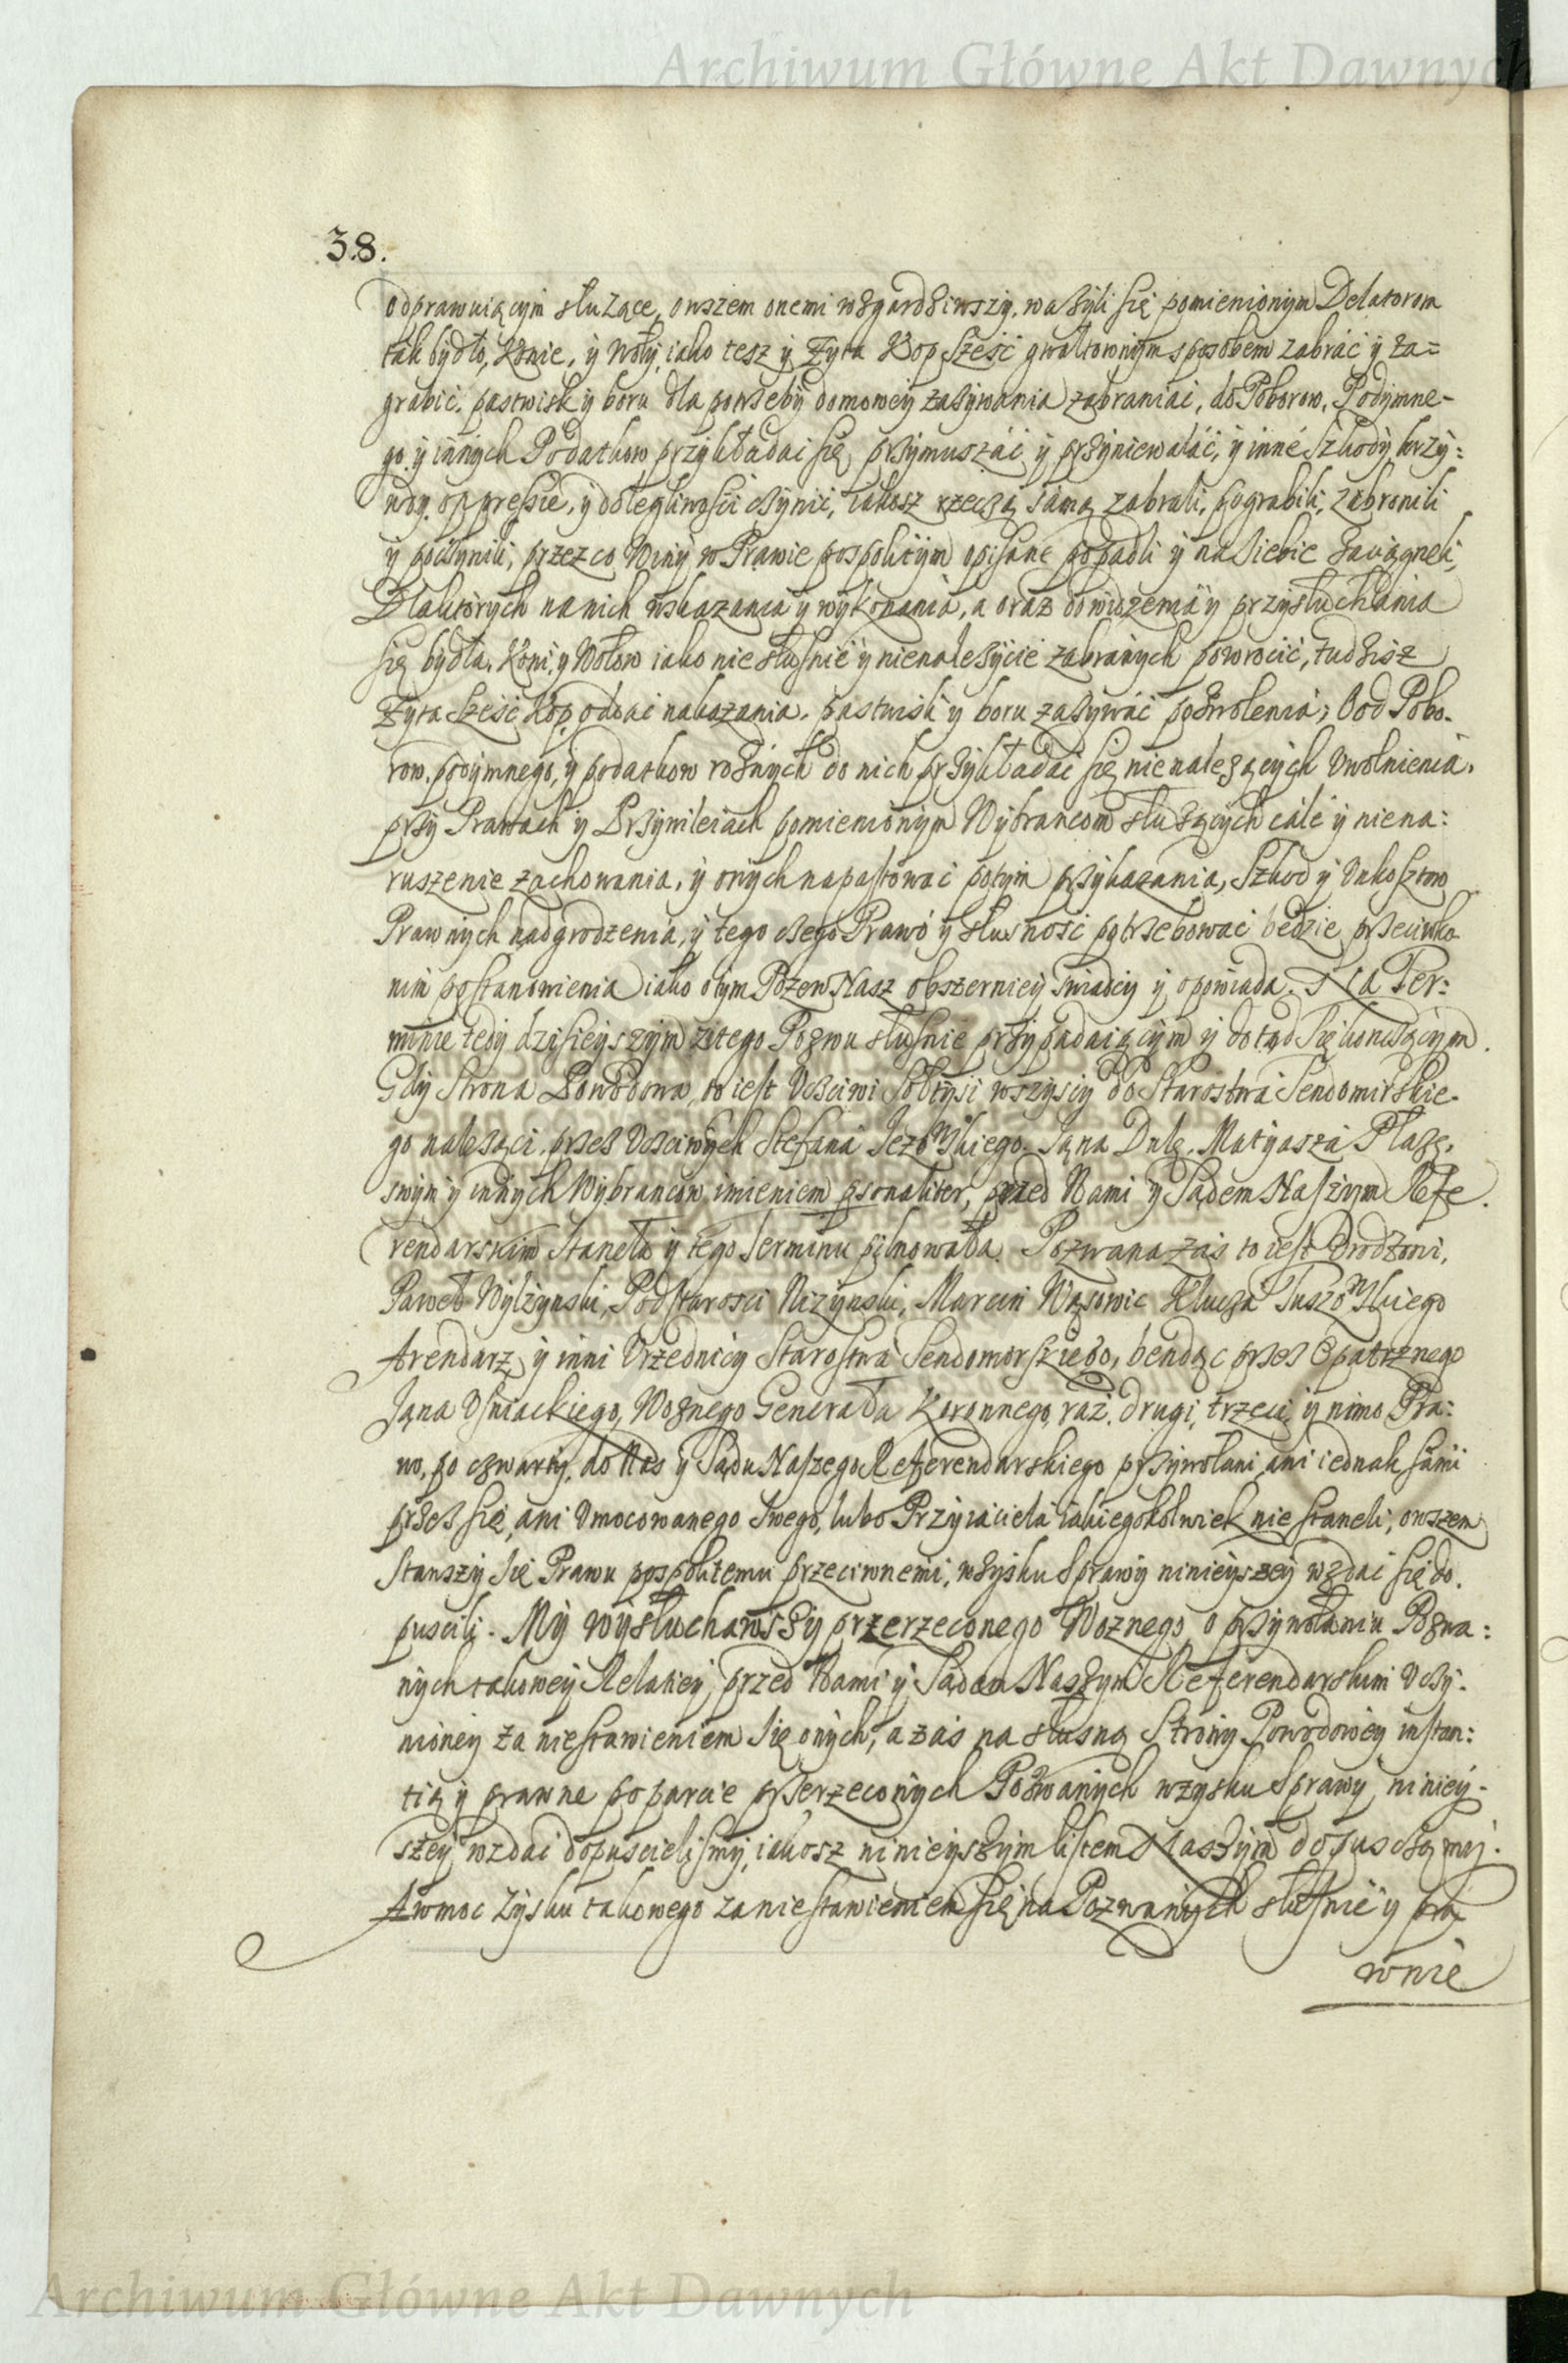 Archiwum Główne Akt Dawnych
38.
odprawuiącym służące, owszem onemi wzgardziwszy, ważyli się pomienionym Delatorom
tak bydło, Konie, y Woły, iako tesz y Zyta Kop sześć gwałtownym sposobem zabrać y za=
grabić, pastwisk y boru dla potrzeby domowey zażywania zabraniać, do Poborow, Podymne-
go y innych Podatkow przykładać się przymuszać y przyniewalać, y inné Szkody krzy:
wdy oppressie, y dolegliwości czynić, iakosz rzeczą samą zabrali, pograbili, zabronili
y poczynili, przez co Winy w Prawie pospolitym opisane popadli y na siebie zaciągneli,
Dla których na nich wskazania y wykonania, a oraz do widzenia y przysłuchania
się bydła, Koni, y Wołow iako nie słusnie y nienależycie zabranych powrocić, tudzisz
Zyta sześć Kop oddać nakazania, pastwisk y boru zażywać pozwolenia, Ood Pobo-
row, podymnego, y podatkow rożnych do nich przykładać się nienależących Uwolnienia,
przy Prawach y Przywileiach pomienionym Wybrancom służących całe y niena:
ruszenie zachowania, y onych napastować potym przykazania, Szkod y Unkosztow
Prawnych nadgrodzenia, y tego czego Prawo y słusność potrzebować będzie przeciwko
nim postanowienia iako o tym Pozew Nasz obszerniey swiadczy y opowiada. Na Ter:
minie tedy dzisieyszym z tego Pozwu słusnie przypadaiącym y dotąd się kończącym.
Gdy Strona Powodowa, to iest Uczciwi Sołtysi wszyscy do Starostwa Sendomirskie-
go należąci, przez Uczciwych Stefana Jezowskiego, Jana Dulę, Matyasza Płazę,
swym y innych Wybrancow imieniem personaliter, przed Nami y Sądem Naszym Refe
rendarskim Staneła y tego Terminu pilnowała. Pozwana zaś to iest Urodzoni,
Paweł Wylżynski, Podstarosci Niżynski, Marcin Wąsowic Klucza Tuszowskiego
Arendarz, y inni Urzednicy Starostwa Sendomorskiego, bendąc przez Opatrznego
Jana Usniackiego, Woznego Generała Koronnego, raz, drugi, trzeci, y nimo Pra:
wo, po czwarty, do Nas y Sądu Naszego Referendarskiego przywołani, ani iednak sami
przez się, ani Umocowanego Swego, lubo Przyiaciela iakiegokolwiek nie staneli, owszem
Stawszy się Prawu pospolitemu przeciwnemi, w zysku Sprawy ninieyszey wzdać się do
puscili. My wysłuchawszy przerzeczonego Woznego, o przywołaniu Pozwa:
nych takowey Relatiey, przed Nami y Sądem Naszym Referendarskim Uczy-
nioney za niestawieniem się onych, a zaś na słusną Strony Powodowey instan:
tią y prawne poparcie przerzeczonych Pozwanych w zysku Sprawy niniey-
szey wzdać dopuscielismy, iakosz ninieyszym listem Naszym dopusczamy.
A w moc Zysku takowego za niestawieniem się na Pozwanych słusnie y pra
wnie
Archiwum Główne Akt Dawnych